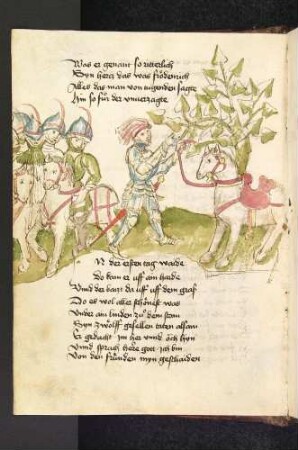 Was er genant so ritterlich
Syn hertz das was fröderich
Alles das man von tugenden sagte
Hin so für der unverzagte
N der ersten tag waide
Do kam er uff ain haide
Vnd der bart da uff dem graß
Do es wol aller schönest was
Vnder ain linden zu dem stam
Syn zwölff gesellen alsam
Er gedacht im her vnd och hyn
Vnnd sprach here gott ich bin
Von den fründen myn geschaiden